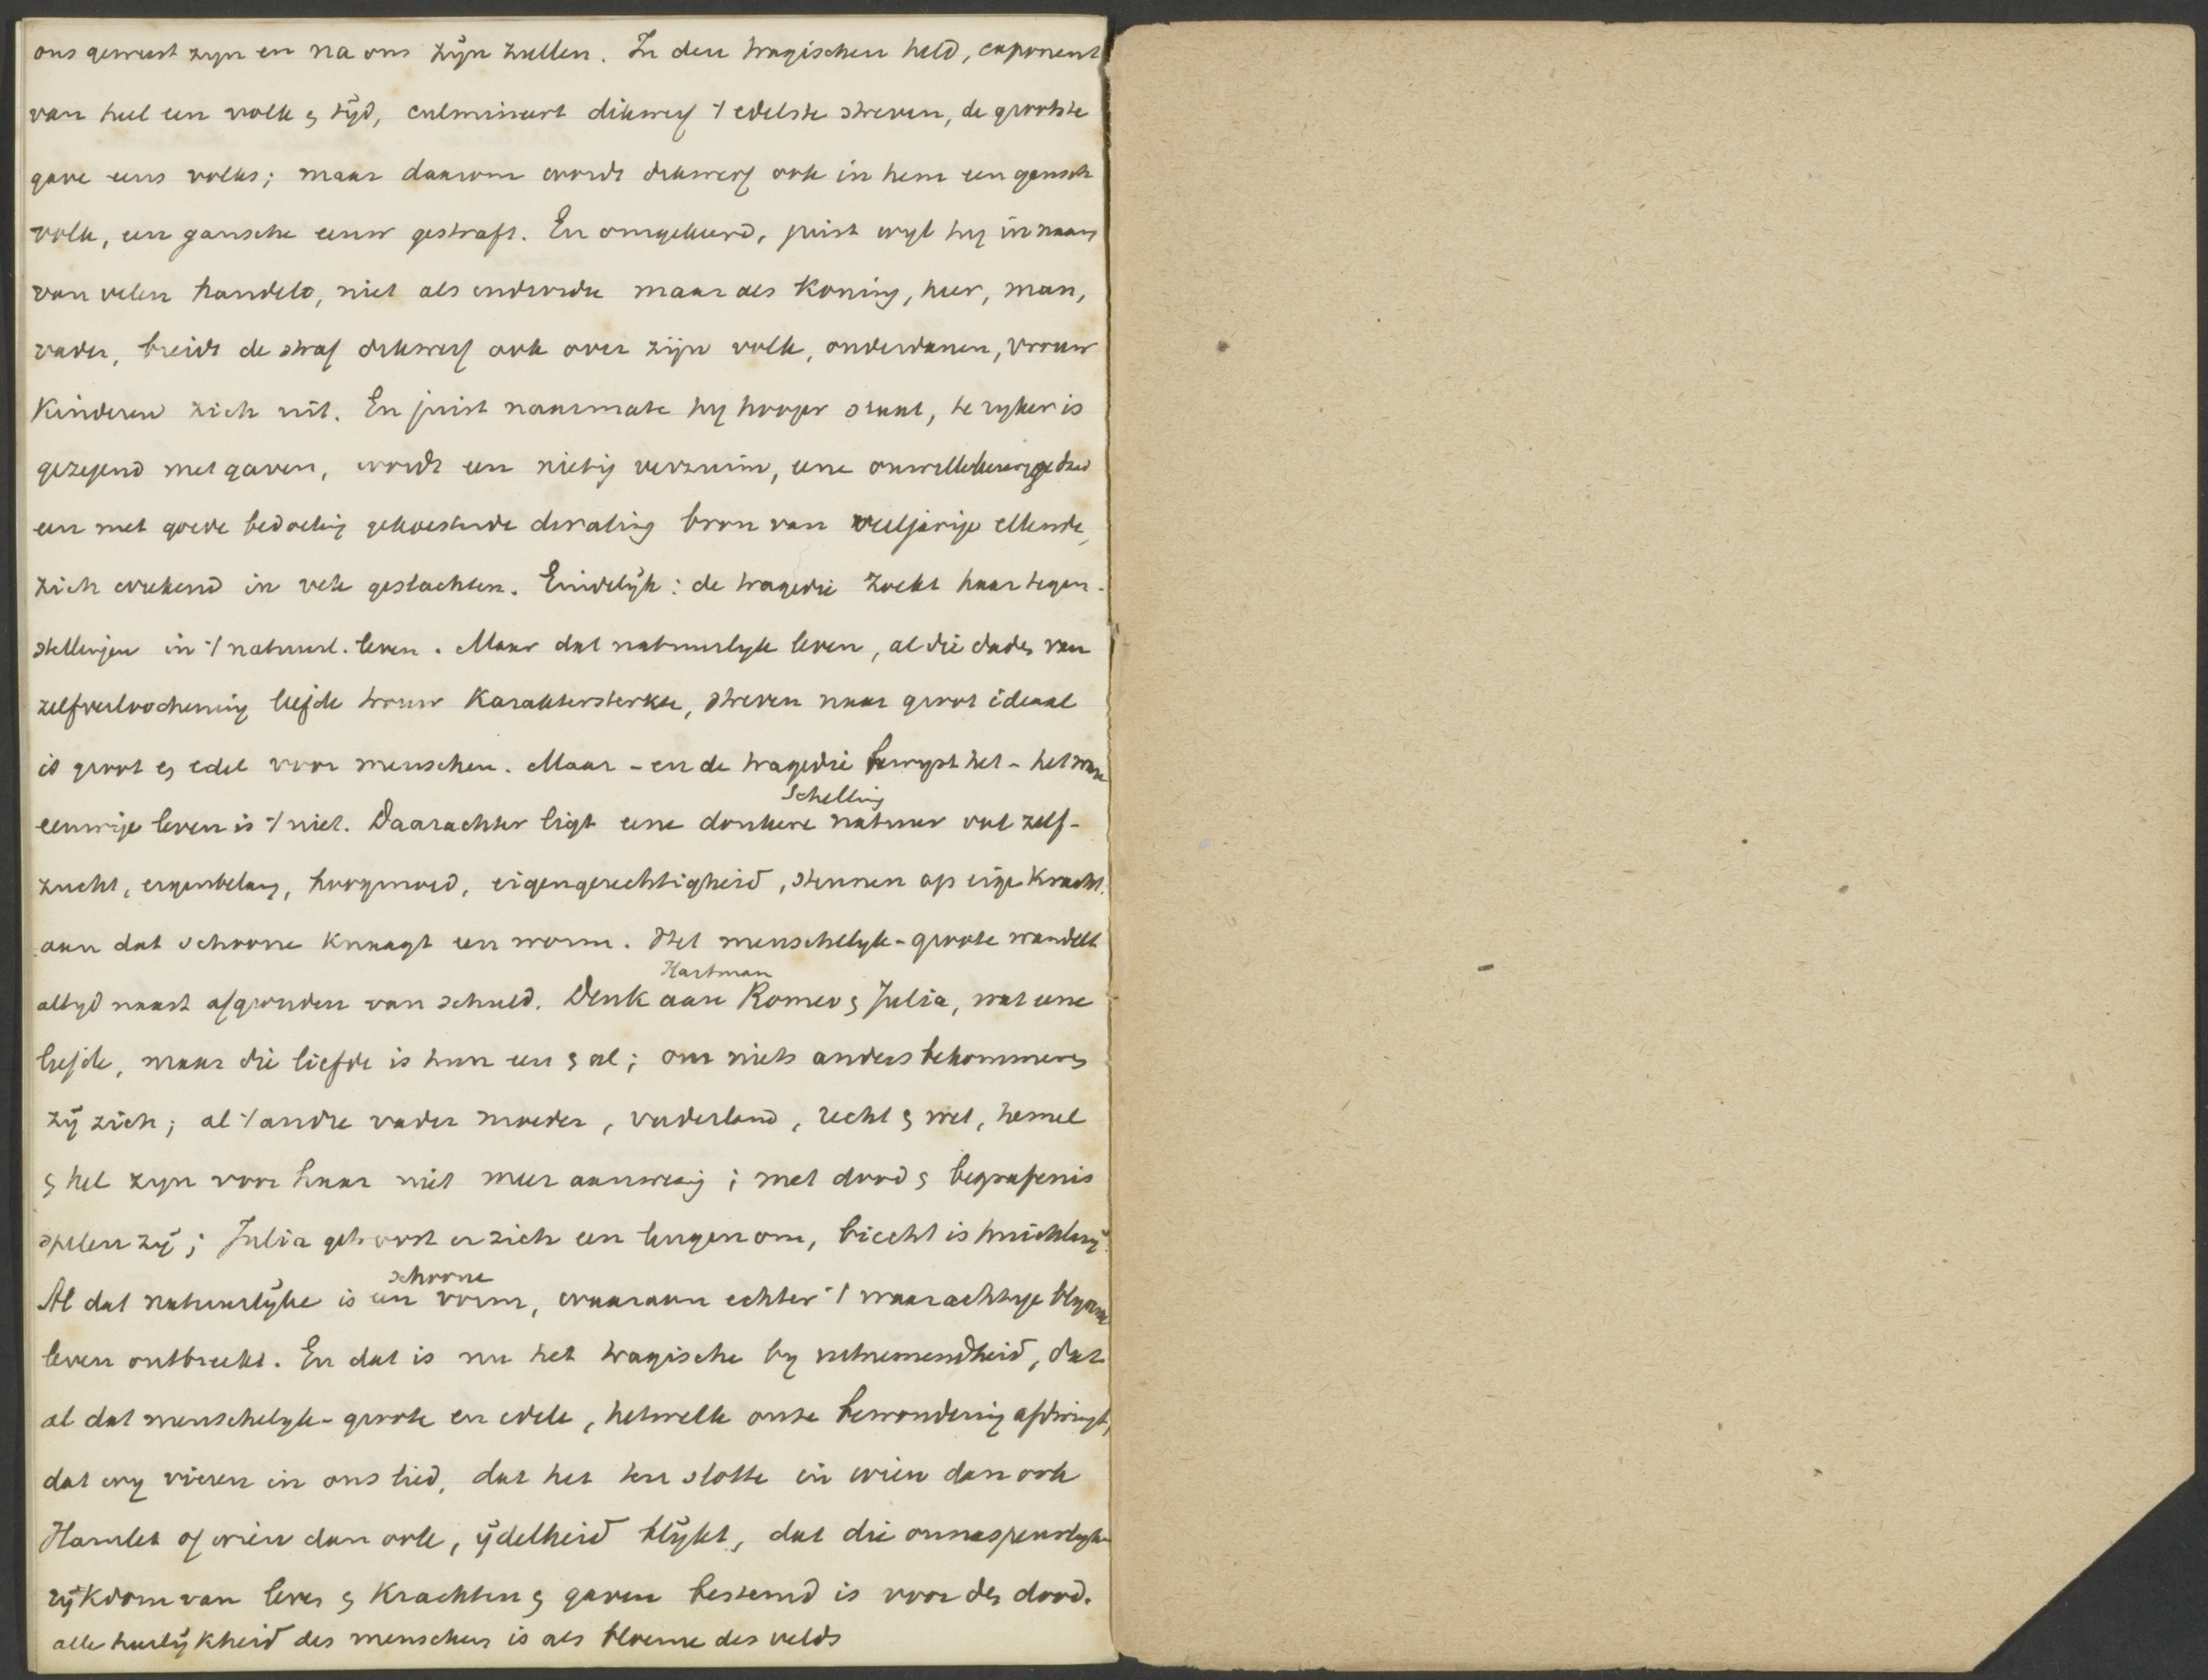 ons geweest zyn en na ons zÿn zullen. In den tragischen held, exponent
van heel een volk & tÿd, culmineert dikwerf 't edelste streven, de grootste
gave eens volks; maar daarom wordt dikwerf ook in hem een gansch
volk, een gansche eeuw gestraft. En omgekeerd, juist wyl hy in naam
van velen handelt, niet als enderde maar als Koning, heer, man,
vader, breidt de straf dikwerf ook over zijn volk, onderdanen, vrouw
Kinderen zich uit. En juist naarmate hy hooger staat, te ryker is
gezegend met gaven, wordt een nietig verzuim, eene onwillekeurige daad
een met goede bedoeling gekoesterde dwaling bron van veeljarige ellende,
zich wrekend in vele geslachten. Eindelÿk: de tragedie zoekt haar tegen-
stellingen in 't natuurl. leven. Maar dat natuurlyke leven, al die daden van
zelfverloochening liefde trouw Karaktersterkte, streven naar groot ideaal
is groot & edel voor menschen. Maar - en de tragedie bewyst het - het ware
eeuwige leven is 't niet. Daarachter ligt eene donkere natuur vol zelf-
Schelling
zucht, eigenbelang, hoogmoed, eigengerechtigheid, steunen op eige Kracht.
aan dat schoone Knaagt een worm. Het menschelyk-groote wandelt
altyd naast afgronden van schuld. Denk aan Romeo & Julia, wat eene
Hartman
liefde, maar die liefde is hun een & al; om niets anders bekommeren
zÿ zich; al 't andre vader moeder, vaderland, recht & wet, hemel
& hel zyn voor haar niet meer aanwezig; met dood & begrafenis
spelen zÿ; Julia getroost er zich een leugen om, biecht is huichlarÿ.
Al dat natuurlÿke is een schoone vorm, waaraan echter 't waarachtige blyvende
leven ontbreekt. En dat is nu het tragische by uitnemendheid, dat
al dat menschelyk-groote en edele, hetwelk onze bewondering afdwingt,
dat wy vieren in ons lied, dat het ten slotte in wien dan ook
Hamlet of wien dan ook, ÿdelheid blÿkt, dat die onnaspeurlyke
rÿkdom van leven & Krachten & gaven bestemd is voor den dood.
alle heerlÿkheid des menschen is als bloeme des velds